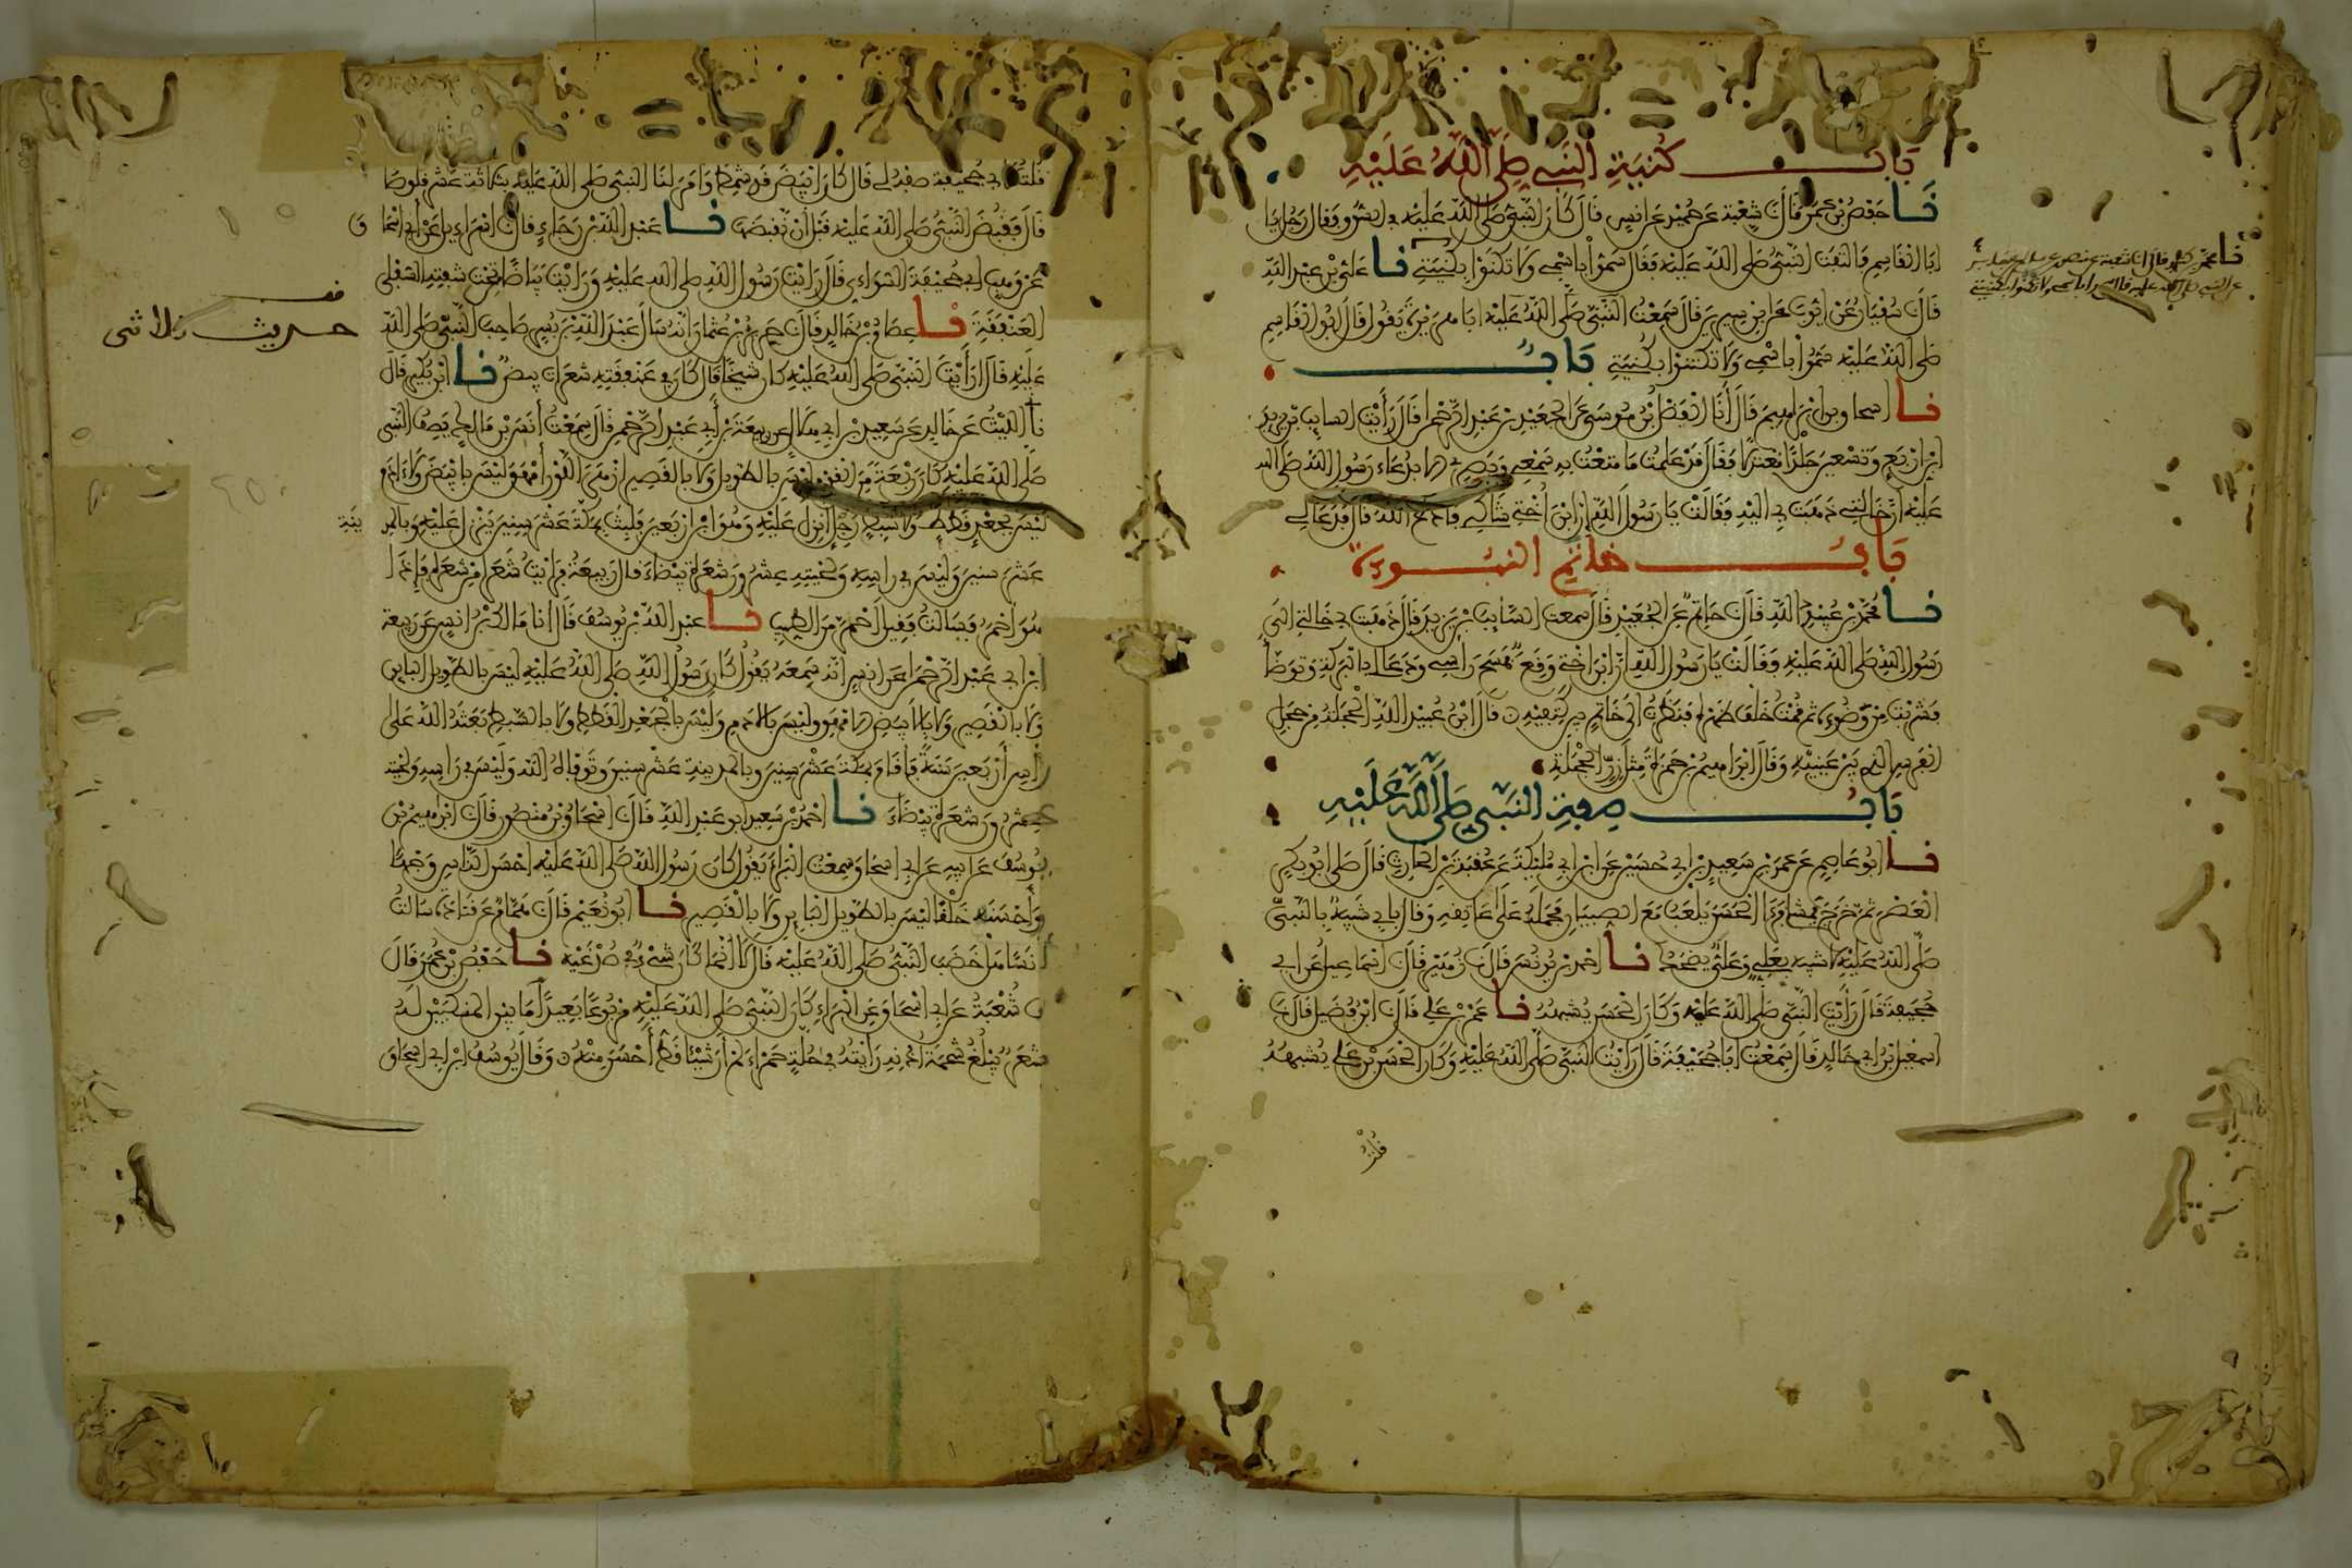 بَابُ كُنْيَةِ النَّبِيِّ صَلَّى اللَّهُ عَلَيْهِ
نَا حَفْصُ بْنُ عُمَرَ قَالَ نَا شُعْبَةُ عَنْ حُمَيْدٍ عَنْ أَنَسٍ قَالَ كَانَ النَّبِيُّ صَلَّى اللَّهُ عَلَيْهِ فِي السُّوقِ فَقَالَ رَجُلٌ يَا
أَبَا الْقَاسِمِ فَالْتَفَتَ النَّبِيُّ صَلَّى اللَّهُ عَلَيْهِ فَقَالَ سَمُّوا بِاسْمِي وَلَا تَكْتَنُوا بِكُنْيَتِي نَا عَلِيُّ بْنُ عَبْدِ اللَّهِ
قَالَ نَا سُفْيَانُ عَنْ أَيُّوبَ عَنِ ابْنِ سِيرِينَ قَالَ سَمِعْتُ أَبَا هُرَيْرَةَ يَقُولُ قَالَ أَبُو الْقَاسِمِ
صَلَّى اللَّهُ عَلَيْهِ سَمُّوا بِاسْمِي وَلَا تَكْتَنُوا بِكُنْيَتِي بَابُ
نَا إسحاق بن إبراهيم قَالَ أَنَا الْفَضْلُ بْنُ مُوسَى عَنِ الْجُعَيْدِ بْنِ عَبْدِ الرَّحْمَنِ قَالَ رَأَيْتُ السايب بن يزيد
ابْنَ أَرْبَعٍ وَتِسْعِينَ جَلْدًا مُعْتَدِلًا فَقَالَ قَدْ عَلِمْتُ مَا مُتِّعْتُ بِهِ سَمْعِي وَبَصَرِي إلا بِدُعَاءِ رَسُولِ اللَّهِ صَلَّى الله
عَلَيْهِ إِنَّ خَالَتِي ذَهَبَتْ بِي إِلَيْهِ فَقَالَتْ يَا رَسُولَ اللَّهِ إِنَّ ابْنَ أُخْتِي شَاكٍ فَادْعُ اللَّهَ قَالَ فَدَعَا لِي
بَابُ خَاتَمِ النُّبُوءَةِ
نَا مُحَمَّدُ بْنُ عُبَيْدِ اللَّهِ قَالَ نَا حَاتِمٌ عَنِ الْجُعَيْدِ قَالَ سمعت السَّايِبَ بْنَ يَزِيدَ قَالَ ذَهَبَتْ بِي خَالَتِي إِلَى
رَسُولِ اللَّهِ صَلَّى اللَّهُ عَلَيْهِ فَقَالَتْ يَا رَسُولَ اللَّهِ إِنَّ ابْنَ أُخْتِي وَقِعٌ فَمَسَحَ رَأْسِي وَدَعَا لِي بِالْبَرَكَةِ وَتَوَضَّأَ
فَشَرِبْتُ مِنْ وَضُوئِهِ ثُمَّ قُمْتُ خَلْفَ ظَهْرِهِ فَنَظَرْتُ إِلَى خَاتَمٍ بين كَتِفَيْهِ قَالَ ابْنُ عُبَيْدِ اللَّهِ الْحُجْلَةُ مِنْ حُجَلِ
الْفَرَسِ الذي بَيْنَ عَيْنَيْهِ وَقَالَ إِبْرَاهِيمُ بْنُ حَمْزَةَ مِثْلَ زِرِّ الْحَجَلَةِ
بَابُ صِفَةِ النَّبِيِّ صَلَّى اللَّهُ عَلَيْهِ
نَا أَبُو عَاصِمٍ عَنْ عُمَرَ بْنِ سَعِيدِ بْنِ أَبِي حُسَيْنٍ عَنِ ابْنِ أَبِي مُلَيْكَةَ عَنْ عُقْبَةَ بْنِ الْحَارِثِ قَالَ صَلَّى أَبُو بَكْرٍ
الْعَصْرَ ثُمَّ خَرَجَ يَمْشِي فَرَأَى الْحَسَنَ يَلْعَبُ مَعَ الصِّبْيَانِ فَحَمَلَهُ عَلَى عَاتِقِهِ وَقَالَ بِأَبِي شَبِيهٌ بِالنَّبِيِّ
صَلَّى اللَّهُ عَلَيْهِ لَا شَبِيهٌ بِعَلِيٍّ وَعَلِيٌّ يَضْحَكُ نَا أَحْمَدُ بْنُ يُونُسَ قَالَ نَا زُهَيْرٌ قَالَ نَا إِسْمَاعِيلُ عَنْ أَبِي
جُحَيْفَةَ قَالَ رَأَيْتُ النَّبِيَّ صَلَّى اللَّهُ عَلَيْهِ وَكَانَ الْحَسَنُ يُشْبِهُهُ نَا عَمْرُو بْنُ عَلِيٍّ قَالَ نَا ابْنُ فُضَيْلٍ قَالَ نَا
إِسْمَعِيلُ بْنُ أَبِي خَالِدٍ قَالَ سَمِعْتُ أَبَا جُحَيْفَةَ قَالَ رَأَيْتُ النَّبِيَّ صَلَّى اللَّهُ عَلَيْهِ وَكَانَ الْحَسَنُ بْنُ عَلِيٍّ يُشْبِهُهُ
قُلْتُ
نا محمد بن كثير قال انا شعبة عن منصور عن سالم عن جابر
عن النبي صلى الله عليه قال تسموا باسمي ولا تكتنوا بكنيتي
قُلْتُ لأبي جحيفة صفه لي قال كان أَبْيَضَ قَدْ شَمِطَ وَأَمَرَ لَنَا النَّبِيُّ صَلَّى اللَّهُ عَلَيْهِ بثلاثة عَشَرَ قَلُوصًا
قَالَ فَقُبِضَ النَّبِيُّ صَلَّى اللَّهُ عَلَيْهِ قَبْلَ أَنْ نَقْبِضَهَا نَا عَبْدُ اللَّهِ بْنُ رَجَاءٍ قال نا إسْرَاءِيلُ عَنْ أَبِي إسحا ق
عَنْ وَهْبٍ أَبِي جُحَيْفَةَ السُّوَاءِيِّ قَالَ رَأَيْتُ رَسُولَ اللَّهِ صلى الله عَلَيْهِ وَرَأَيْتُ بَيَاضًا تَحْتَ شَفَتِهِ السُّفْلَى
الْعَنْفَقَةَ نَا عِصَامُ بْنُ خَالِدٍ قَالَ نَا حَرِيزُ بْنُ عُثْمَانَ أَنَّهُ سَأَلَ عَبْدَ اللَّهِ بْنَ بُسْرٍ صَاحِبَ النَّبِيِّ صَلَّى اللَّهُ
عَلَيْهِ قَالَ أَرَأَيْتَ النَّبِيَّ صَلَّى اللَّهُ عَلَيْهِ كَانَ شَيْخًا قَالَ كَانَ فِي عَنْفَقَتِهِ شَعَرَاتٌ بِيضٌ نَا ابْنُ بُكَيْرٍ قَالَ
نَا اللَّيْثُ عَنْ خَالِدٍ عَنْ سَعِيدِ بْنِ أَبِي هِلَالٍ عن رَبِيعَةَ بْنِ أَبِي عَبْدِ الرَّحْمَنِ قَالَ سَمِعْتُ أَنَسَ بْنَ مَالِكٍ يَصِفُ النَّبِيَّ
صَلَّى اللَّهُ عَلَيْهِ كَانَ رَبْعَةً مِنَ الْقَوْمِ لَيْسَ بِالطَّوِيلِ وَلَا بِالْقَصِيرِ أَزْهَرَ اللَّوْنِ أَمْهَقَ لَيْسَ بِأَبْيَضَ وَلَا آدَمَ
لَيْسَ بِجَعْدٍ قَطَطٍ وَلَا سَبْطٍ رَجِلٍ أُنْزِلَ عَلَيْهِ وَهُوَ ابْنُ أَرْبَعِينَ فَلَبِثَ بِمَكَّةَ عَشْرَ سِنِينَ يُنْزَلُ عَلَيْهِ وَبِالْمَدِ ينَةِ
عَشْرَ سنين وَلَيْسَ فِي رَاسِهِ وَلِحْيَتِهِ عِشْرُونَ شَعَرَةً بَيْضَاءَ قَالَ رَبِيعَةُ فَرَأَيْتُ شَعَرًا مِنْ شَعَرِهِ فَإِذَا
هُوَ أَحْمَرُ فَسَأَلْتُ فَقِيلَ احْمَرَّ مِنَ الطِّيبِ نَا عَبْدُ اللَّهِ بْنُ يُوسُفَ قَالَ أَنَا مَالِكُ بْنُ أَنَسٍ عَنْ رَبِيعَةَ
ابْنِ أَبِي عَبْدِ الرَّحْمَنِ عَنْ أَنَسٍ أَنَّهُ سَمِعَهُ يَقُولُ كَانَ رَسُولُ اللَّهِ صَلَّى اللَّهُ عَلَيْهِ لَيْسَ بِالطَّوِيلِ الْبَايِنِ
وَلَا بِالْقَصِيرِ وَلَا بِالْأَبْيَضِ الْأَمْهَقِ وَلَيْسَ بِالْآدَمِ وَلَيْسَ بِالْجَعْدِ الْقَطَطِ وَلَا بِالسَّبْطِ بَعَثَهُ اللَّهُ عَلَى
رَأْسِ أَرْبَعِينَ سَنَةً فَأَقَامَ بِمَكَّةَ عَشْرَ سِنِينَ وَبِالْمَدِينَةِ عَشْرَ سِنِينَ وَتَوَفَّاهُ اللَّهُ وَلَيْسَ فِي رَاسِهِ وَلِحْيَتِهِ
عِشْرُونَ شَعَرَةً بَيْضَاءَ نَا أَحْمَدُ بْنُ سَعِيدٍ أَبُو عَبْدِ اللَّهِ قَالَ نَا إِسْحَاقُ بْنُ مَنْصُورٍ قَالَ نَا إِبْرَاهِيمُ بْنُ
يُوسُفَ عَنْ أَبِيهِ عَنْ أَبِي إسحاق سَمِعْتُ الْبَرَاءَ يَقُولُ كَانَ رَسُولُ اللَّهِ صَلَّى اللَّهُ عَلَيْهِ أَحْسَنَ النَّاسِ وَجْهًا
وَأَحْسَنَهُ خَلْقًا لَيْسَ بِالطَّوِيلِ الْبَايِنِ وَلَا بِالْقَصِيرِ نَا أَبُو نُعَيْمٍ قَالَ نَا هَمَّامٌ عَنْ قَتَادَةَ سَأَلْتُ
أَنَسًا هَلْ خَضَبَ النَّبِيُّ صَلَّى اللَّهُ عَلَيْهِ قَالَ لَا إِنَّمَا كَانَ شَيْءٌ فِي صُدْغَيْهِ نَا حَفْصُ بْنُ عُمَرَ قَالَ
نَا شُعْبَةُ عَنْ أَبِي إسحاق عَنِ الْبَرَاءِ كَانَ النَّبِيُّ صَلَّى اللَّهُ عَلَيْهِ مَرْبُوعًا بَعِيدَ مَا بين المنكبين لَهُ
شَعَرٌ يَبْلُغُ شَحْمَةَ أُذُنِهِ رَأَيْتُهُ فِي حُلَّةٍ حَمْرَاءَ لَمْ أَرَ شَيْئًا قَطُّ أَحْسَنَ مِنْهُ وَقَالَ يُوسُفُ ابْنُ أَبِي إسحاق
قف
حديث ثلاثي